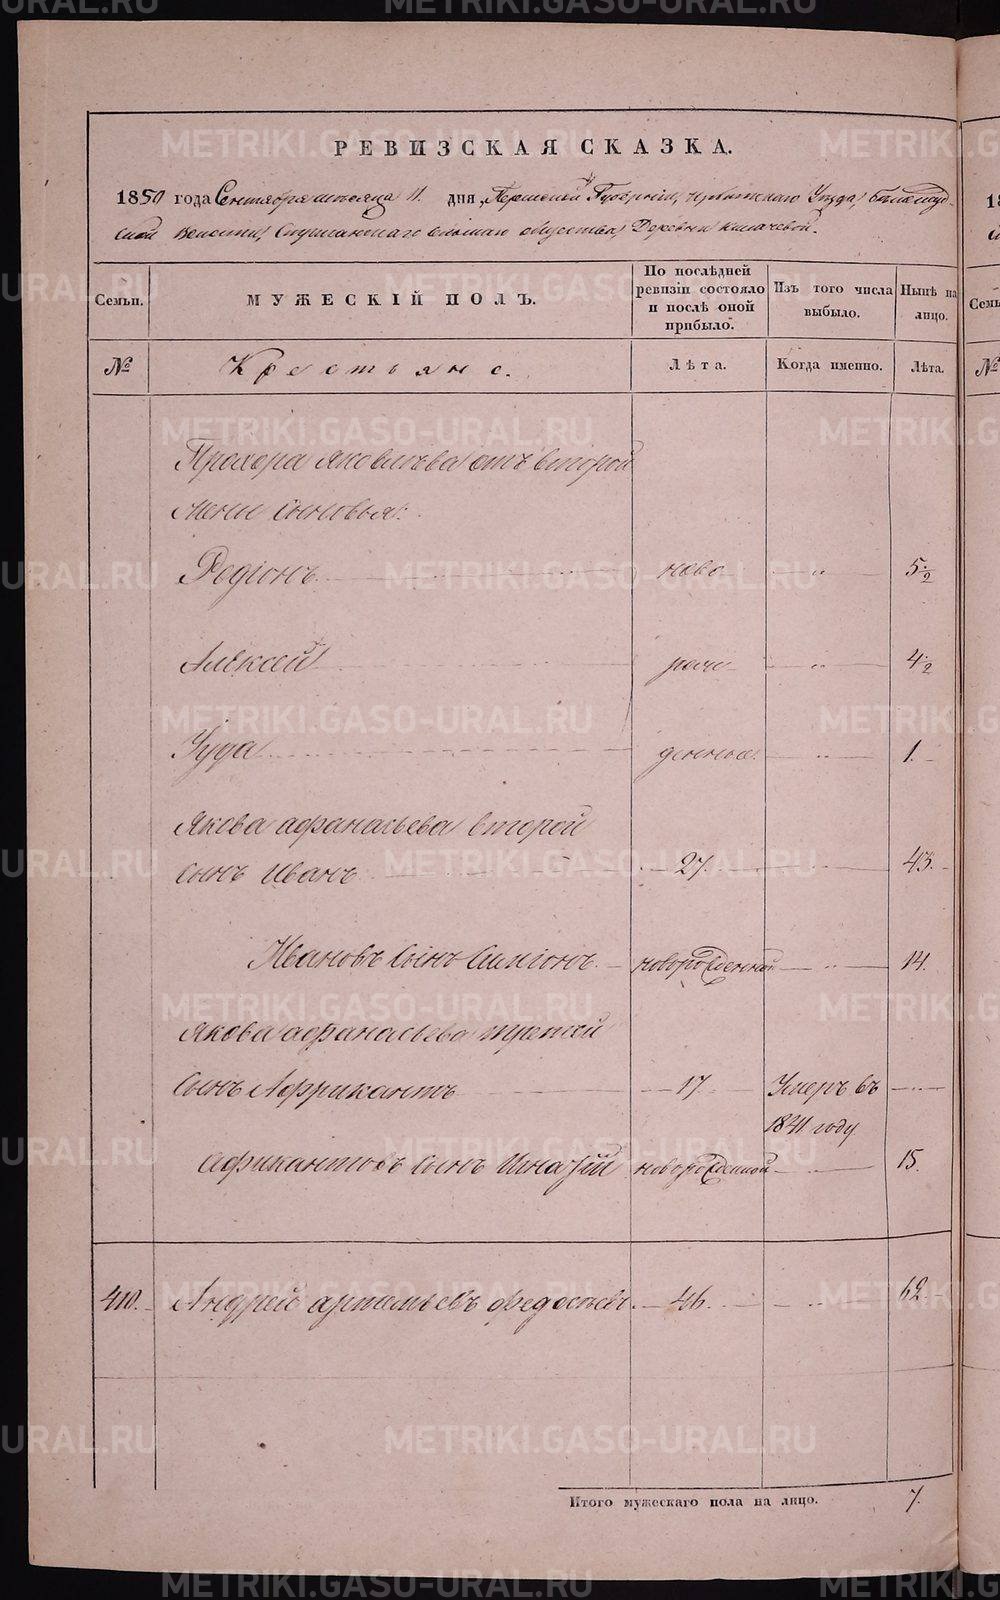 РЕВИЗСКАЯ СКАЗКА.
1850 года Сентября месяца 11. дня, Пермской Губернiи, Ирбитскаго Уѣзда,
Волости, сельскаго общества, Деревни Килачевой.
Семьи. МУЖЕСКІЙ ПОЛЪ. По послѣдней ревизіи состояло и послѣ оной прибыло. Изъ того числа выбыло. Нынѣ на лицо.
№ Крестьяне. Лѣта. Когда именно. Лѣта.
Прохора Яковлева отъ второй
жены сыновья:
Родіонъ ново „ 5 1/2
Алексей рож „ 4 1/2
Іуда денные „ 1.
Якова Афанасьева второй
сынъ Иванъ 27. 43.
Ивановъ сынъ Симіонъ. новорожденной „ 14.
Якова Афанасьева третий
сынъ Африкантъ 17. Умеръ въ „
1841 году
Африкантовъ сынъ новорожденной 15.
410. Андрей Артемьевъ Федосѣевъ. 46. „ 62.
Итого мужескаго пола на лицо. 7.
METRIKI.GASO-URAL.RU